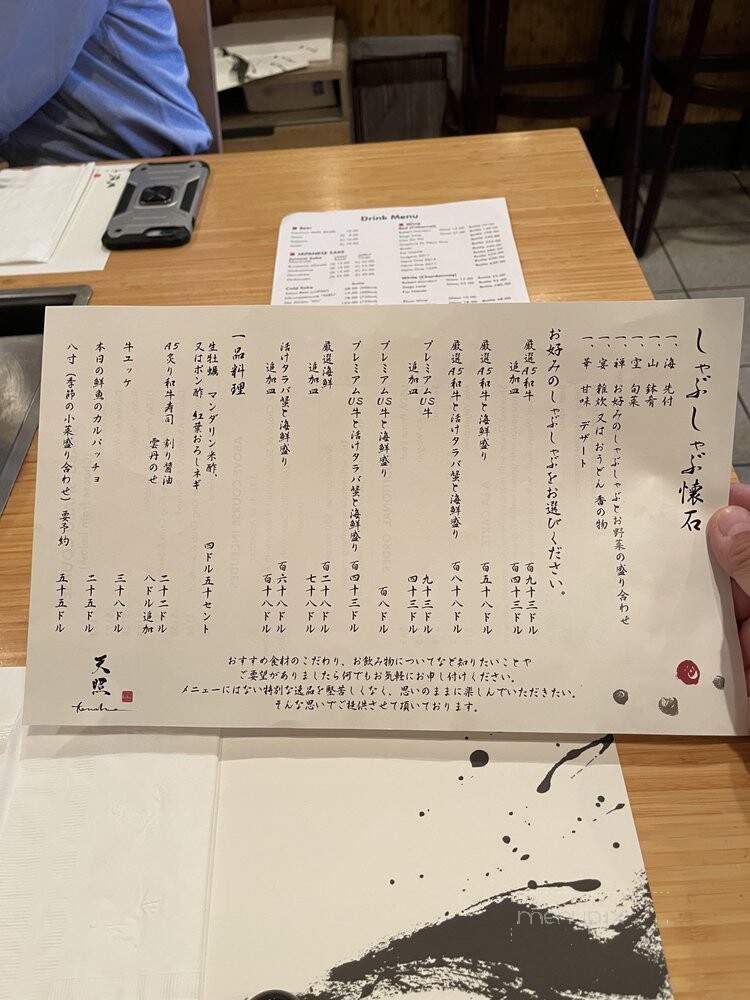 しゃぶしゃぶ懐石
一、海 先付
一、山 鉢肴
一、空 旬菜
一、禅 お好みのしゃぶしゃぶとお野菜の盛り合わせ
一、宴 雑炊 又は おうどん 香の物
一、華 甘味 デザート
お好みのしゃぶしゃぶをお選びください。
厳選A5和牛 百九十三ドル
追加皿 百四十三ドル
厳選A5和牛と海鮮盛り 百五十八ドル
厳選A5和牛と活けタラバ蟹と海鮮盛り 百八十八ドル
プレミアムUS牛 九十三ドル
追加皿 四十三ドル
プレミアムUS牛と海鮮盛り 百八ドル
プレミアムUS牛と活けタラバ蟹と海鮮盛り 百四十三ドル
厳選海鮮 百二十八ドル
追加皿 七十八ドル
活けタラバ蟹と海鮮盛り 百六十八ドル
追加皿 百十八ドル
一品料理
生牡蠣 マンダリン米酢、
又はポン酢 紅葉おろしネギ 四ドル五十セント
A5炙り和牛寿司 割り醤油 二十二ドル
雲丹のせ 八ドル追加
牛ユッケ 三十八ドル
本日の鮮魚のカルパッチョ 二十五ドル
八寸（季節の小菜盛り合わせ）要予約 五十五ドル
おすすめ食材のこだわり、お飲み物についてなど知りたいことや
ご要望がありましたら何でもお気軽にお申し付けください。
メニューにはない特別な逸品を堅苦しくなく、思いのままに楽しんでいただきたい。
そんな思いでご提供させて頂いております。
天照
Drink Menu
Beer
JAPANESE SAKE
Cold Sake
Wine
White (Chardonnay)